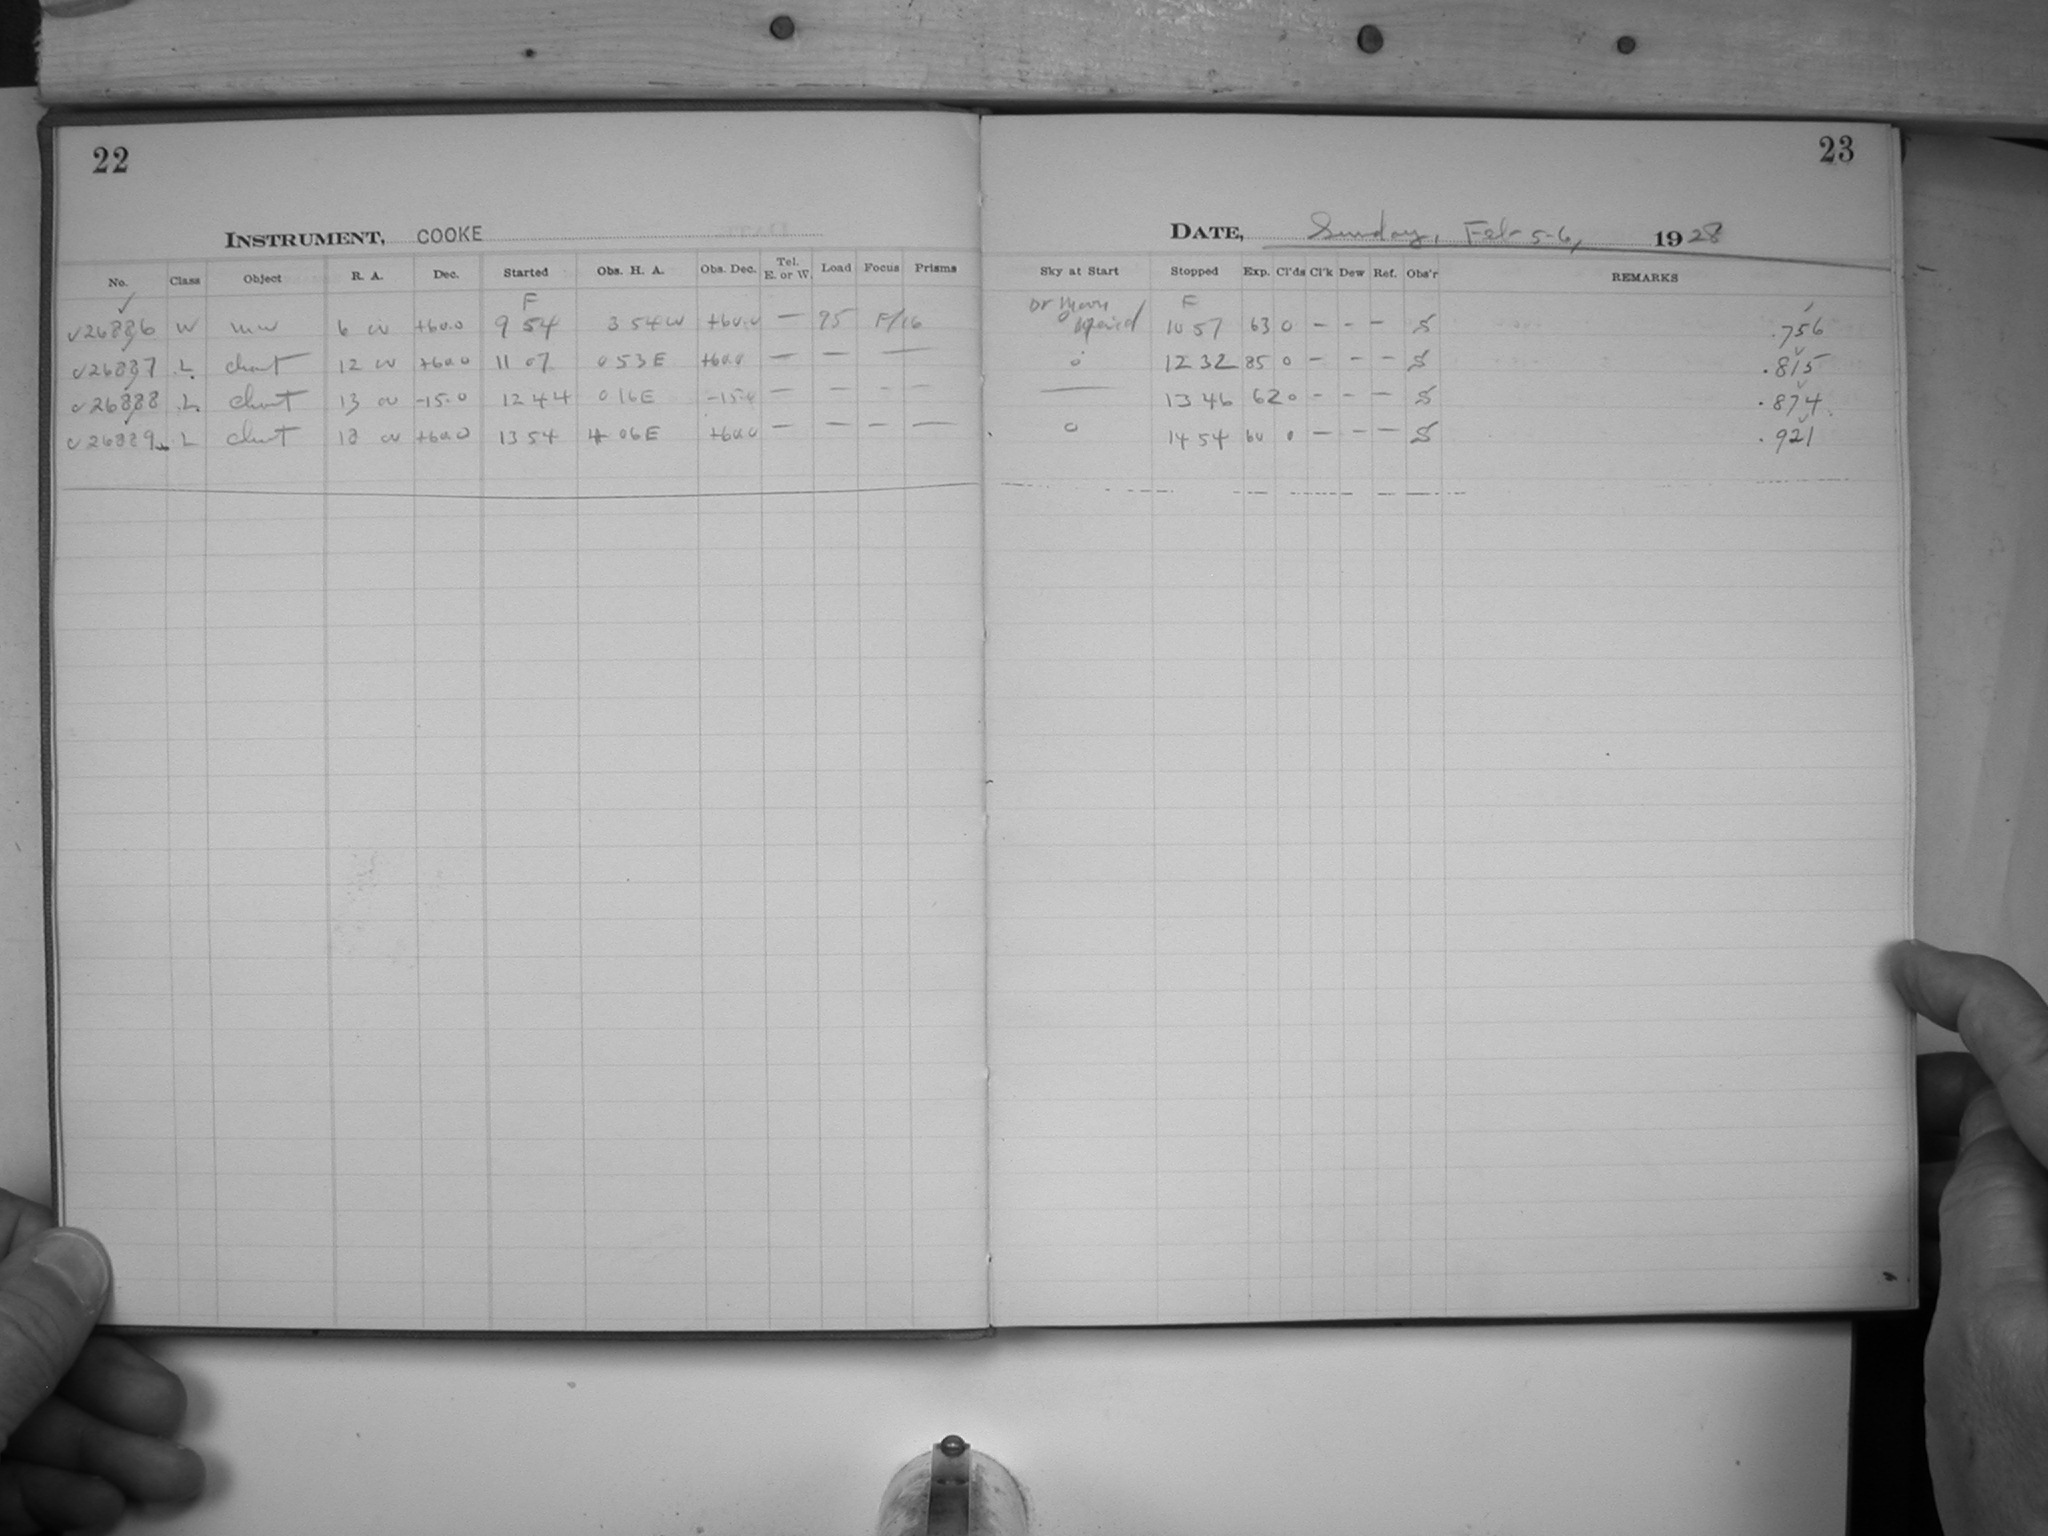 22
INSTRUMENT, COOKE
No. Class Object R. A. Dec. Started Obs. H. A. Obs. Dec. Tel. E. or W. Load Focus Prisms
F
√26836 W mw 6 00 +60.0 9 54 3 54 W +60.0 — 95 F/16
√26837 L chart 12 00 +60.0 11 07 0 53 E +60.0 — — —
√26838 L chart 13 00 -15.0 12 44 0 16 E -15.0 — — – –
√26839 L chart 18 00 +60.0 13 54 4 06 E +60.0 — — — —
23
DATE, Sunday, Feb 5-6, 1928
Sky at Start Stopped Exp. Cl'ds Cl'k Dew Ref. Obs'r REMARKS
F
10 57 63 0 – – – S .756
0 12 32 85 0 – – – S .815
— 13 46 62 0 – – – S .874
0 14 54 60 0 — – — S .921